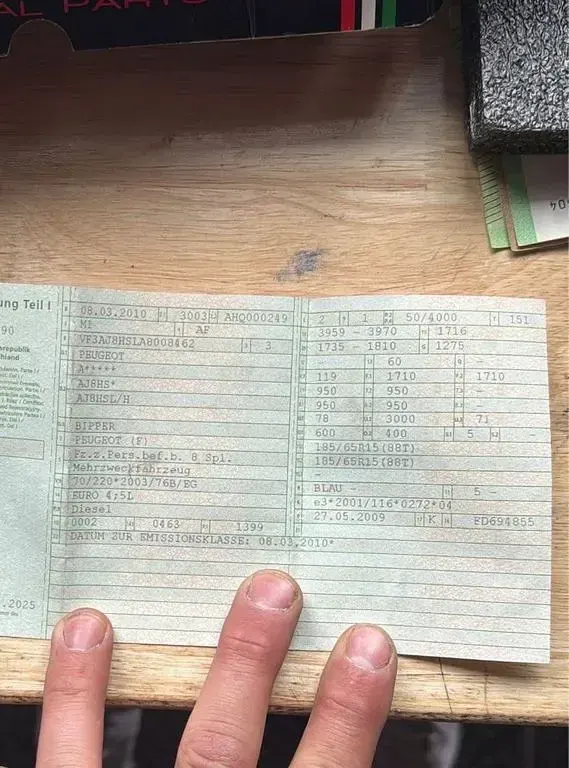 AL PARTS
ung Teil I
90
08.03.2010 3003 AHQ000249
M1 AF
VF3AJ8HSLA8008462 3
PEUGEOT
A*****
AJ8HS*
AJ8HSL/H
BIPPER
PEUGEOT (F)
Fz.z.Pers.bef.b. 8 Spl.
Mehrzweckfahrzeug
70/220*2003/76B/EG
EURO 4;5L
Diesel
0002 0463 1399
DATUM ZUR EMISSIONSKLASSE: 08.03.2010*
2 1 50/4000 151
3959 - 3970 1716
1735 - 1810 1275
- 60 -
119 1710 1710
950 950 -
950 950 -
78 3000 71
600 400 5 -
185/65R15(88T)
185/65R15(88T)
-
BLAU - 5 -
e3*2001/116*0272*04
27.05.2009 K FD694855
.2025